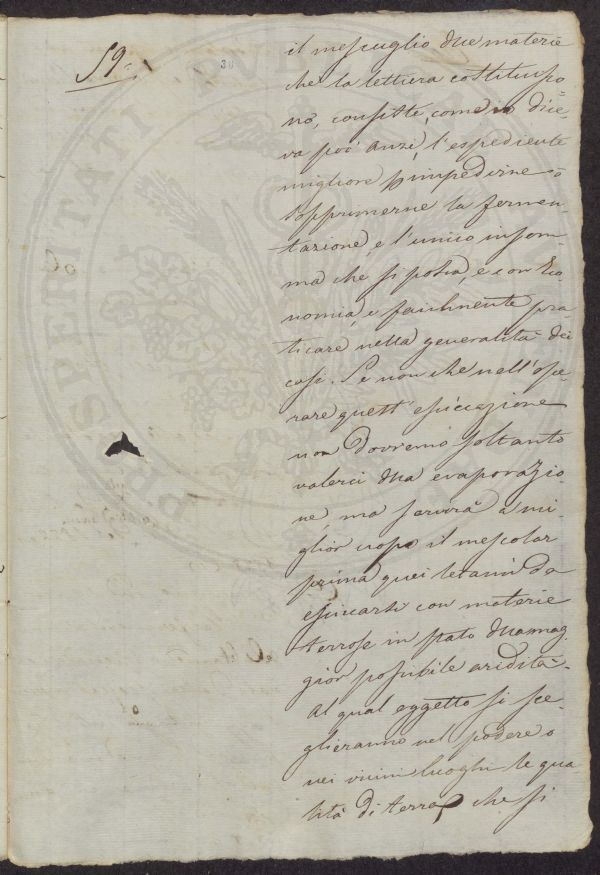 59.
38
il mescuglio due materie
che la lettiera costituisco=
no, consiste, come io dice-
va poc'anzi, l'espediente
migliore p impedirne o
sopprimerne la fermen-
tazione, e l'unico insom-
ma che si possa, e con Eco-
nomia, e facilmente pra-
ticare nella generalità dei
casi. Se non che nell'ope-
rare quest'essiccazione
non dovremo soltanto
valerci dua evaporazio-
ne, ma servirà a mi-
glior uopo il mescolar
prima quei letami da
essiccarsi con materie
terrose in stato dua mag-
gior possibile aridità.
Al qual oggetto si sce-
glieranno nel podere o
nei vicini luoghi le qua-
lità di terre che si